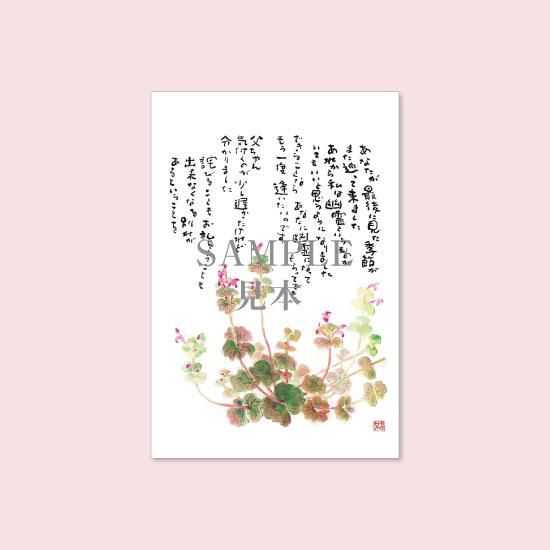 あなたが最後に見た季節が
また巡って来ました
あれから私は幽霊というものが
いてもいいと思うようになりました
できることなら あなたに幽霊になって
もう一度 逢いたいのです
父ちゃん
気付くのが少し遅かったけれど
分かりました
詫びることもお礼を言うことも
出来なくなる別れが
あるということを
SAMPLE
見本